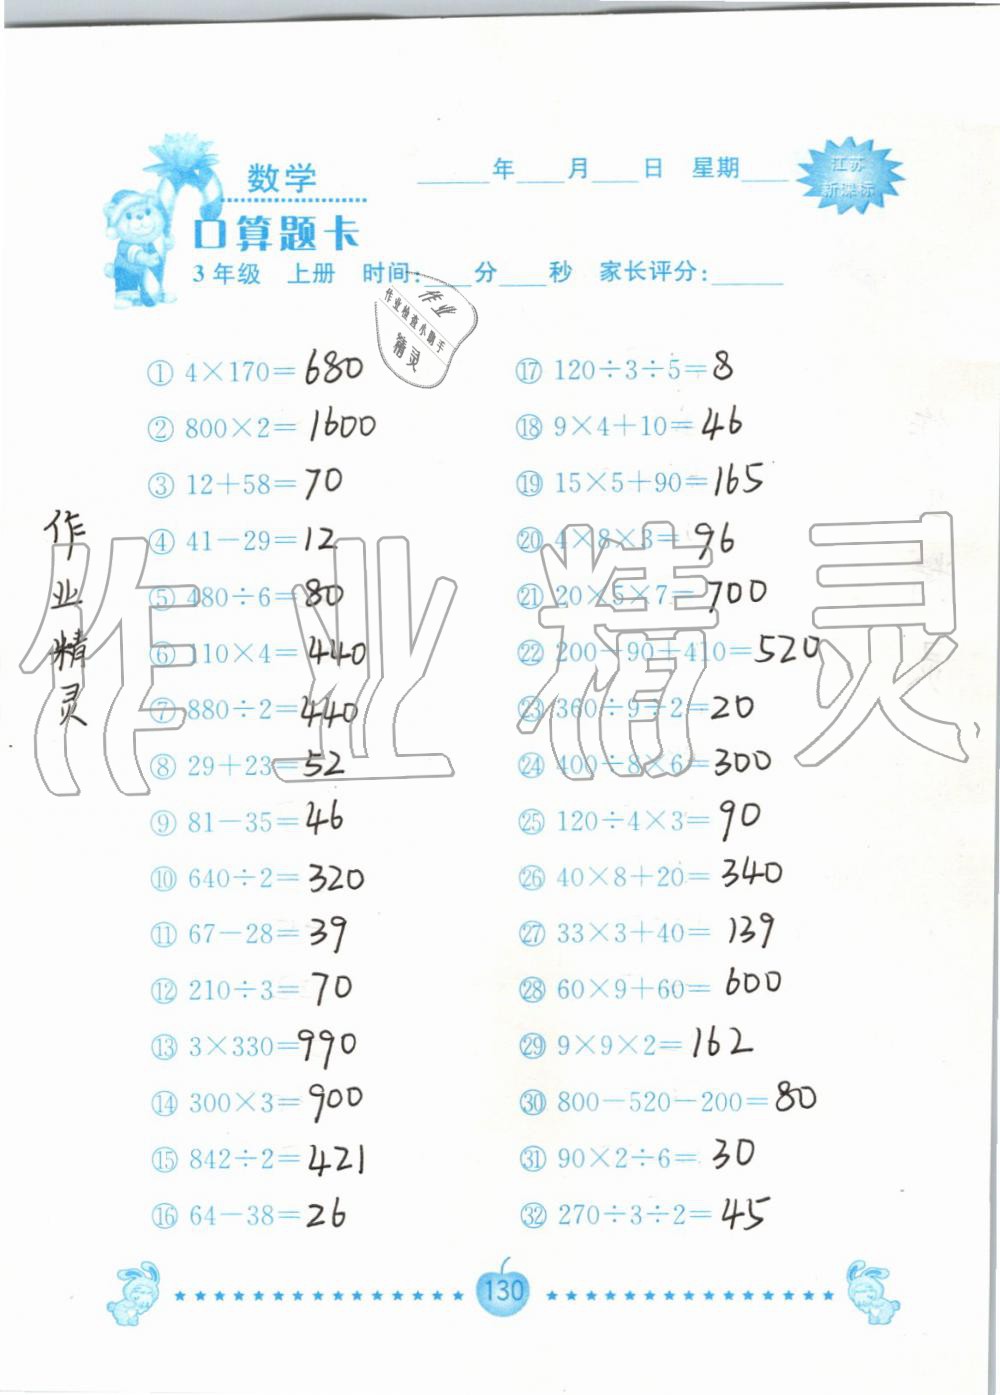 数学
____年____月____日 星期____
江苏
新课标
口算题卡
3年级 上册 时间:____分____秒 家长评分:____
作业
作业检查小助手
精灵
① 4×170=680
② 800×2=1600
③ 12+58=70
④ 41-29=12
⑤ 480÷6=80
⑥ 110×4=440
⑦ 880÷2=440
⑧ 29+23=52
⑨ 81-35=46
⑩ 640÷2=320
⑪ 67-28=39
⑫ 210÷3=70
⑬ 3×330=990
⑭ 300×3=900
⑮ 842÷2=421
⑯ 64-38=26
⑰ 120÷3÷5=8
⑱ 9×4+10=46
⑲ 15×5+90=165
⑳ 4×8×3=96
㉑ 20×5×7=700
㉒ 200-90+410=520
㉓ 360÷9÷2=20
㉔ 400÷8×6=300
㉕ 120÷4×3=90
㉖ 40×8+20=340
㉗ 33×3+40=139
㉘ 60×9+60=600
㉙ 9×9×2=162
㉚ 800-520-200=80
㉛ 90×2÷6=30
㉜ 270÷3÷2=45
作业精灵
作业精灵
130